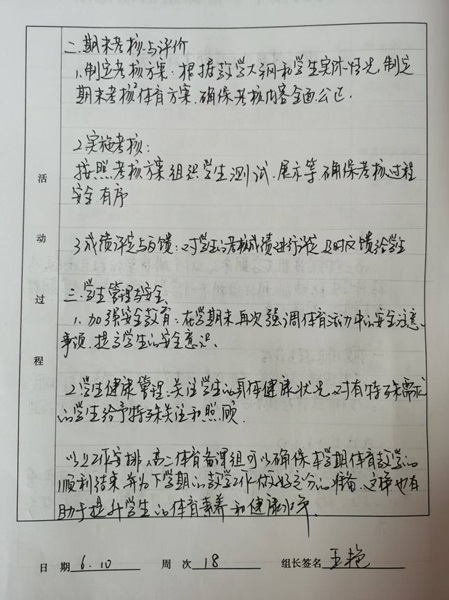 二.期末考核与评价
1.制定考核方案:根据教学大纲和学生实际情况,制定
期末考核体育方案.确保考核内容全面公正.
2.实施考核:
按照考核方案组织学生测试.展示等确保考核过程
安全有序
3.成绩评定与反馈:对学生的考核成绩进行评定及时反馈给学生
三.学生管理与安全.
1.加强安全教育:在学期末再次强调体育活动中的安全注意
事项.提高学生的安全意识.
2.学生健康管理:关注学生的身体健康状况.对有特殊需求
的学生给予特殊关注和照顾.
以上工作安排,高二体育备课组可以确保本学期体育教学的
顺利结束.并为下学期的教学工作做好充分的准备.这样也有
助于提升学生的体育素养和健康水平.
活动过程
日 期 6.10 周 次 18 组长签名 王艳